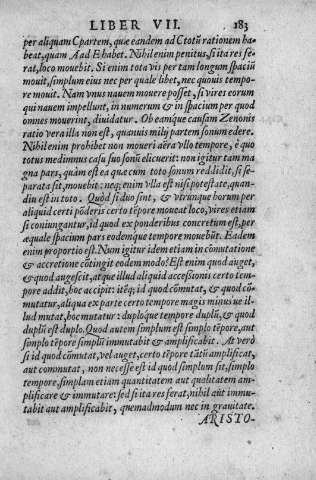 LIBER VII. 183
per aliquam C partem, quæ eandem ad C totũ rationem ha-
beat, quam A ad E habet. Nihil enim penitus, si ita res fe-
rat, loco mouebit. Si enim tota vis per tam longum spaciũ
mouit, simplum eius nec per quale libet, nec quouis tempo-
re mouit. Nam vnus nauem mouere posset, si vires eorum
qui nauem impellunt, in numerum & in spacium per quod
omnes mouerint, diuidatur. Ob eamque causam Zenonis
ratio vera illa non est, quanuis milij partem sonum edere.
Nihil enim prohibet non moueri aëra vllo tempore, è quo
totus medimnus casu suo sonũ elicuerit: non igitur tam ma
gna pars, quàm est ea qua cum toto sonum reddidit, si se-
parata sit, mouebit: neq; enim vlla est nisi potestate, quan-
diu est in toto. Quòd si duo sint, & vtrunque horum per
aliquid certi põderis certo tẽpore moueat loco, vires etiam
si coniungantur, id quod ex ponderibus concretum est, per
æquale spacium pars eodemque tempore mouebũt. Eadem
enim proportio est. Num igitur idem etiam in cõmutatione
& accretione cõtingit eodem modo? Est enim quod auget,
& quod augescit, atque illud aliquid accessionis certo tem-
pore addit, hoc accipit: itẽq; id quod cõmutat, & quod cõ-
mutatur, aliqua ex parte certo tempore magis minus ue il-
lud mutat, hoc mutatur: duploque tempore duplũ, & quod
duplũ est duplo. Quod autem simplum est simplo tẽpore, aut
simplo tẽpore simplũ immutabit & amplificabit. At verò
si id quod cõmutat, vel auget, certo tẽpore tãtũ amplificat,
aut commutat, non necesse est id quod simplum sit, simplo
tempore, simplam etiam quantitatem aut qualitatem am-
plificare & immutare: sed si ita res ferat, nihil aut immu-
tabit aut amplificabit, quemadmodum nec in grauitate.
ARISTO-